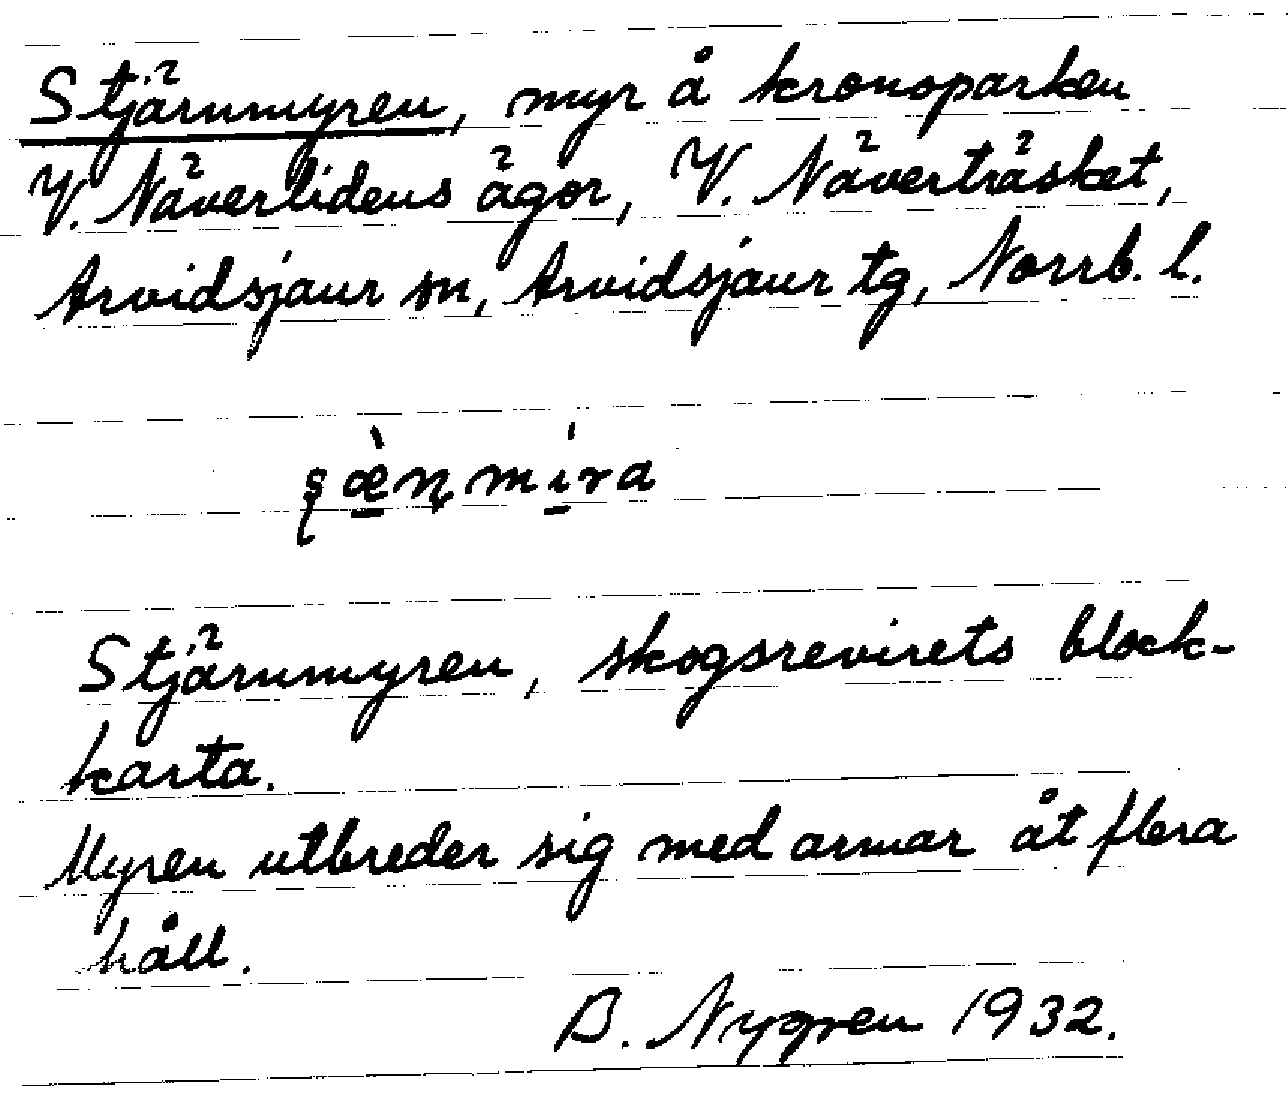 Stjärnmyren, myr å kronoparken
V. Näverlidens ägor, V. Näverträsket,
Arvidsjaur sn, Arvidsjaur tg, Norrb. l.
ʂæ̀ɳmíra
Stjärnmyren, skogsrevirets block-
karta.
Myren utbreder sig med armar åt flera
håll.
B. Nygren 1932.